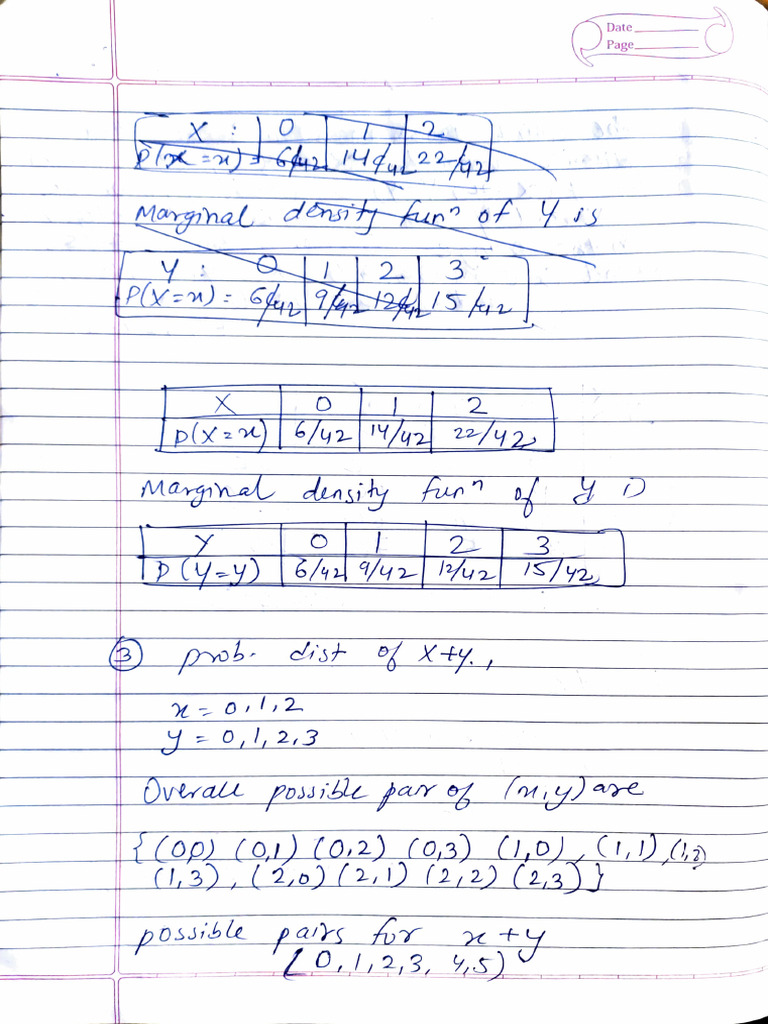 Date
Page
X : 0 1 2
P(x = x) = 6/42 14/42 22/42
Marginal density funⁿ of Y is
Y : 0 1 2 3
P(X=x) = 6/42 9/42 12/42 15/42
X 0 1 2
P(X=x) 6/42 14/42 22/42
Marginal density funⁿ of Y is
Y 0 1 2 3
P(Y=y) 6/42 9/42 12/42 15/42
③ prob. dist of X+Y.,
x = 0,1,2
y = 0,1,2,3
Overall possible pair of (x,y) are
{(0,0) (0,1) (0,2) (0,3) (1,0), (1,1), (1,2)
(1,3), (2,0) (2,1) (2,2) (2,3)}
possible pairs for x+y
(0,1,2,3, 4,5)